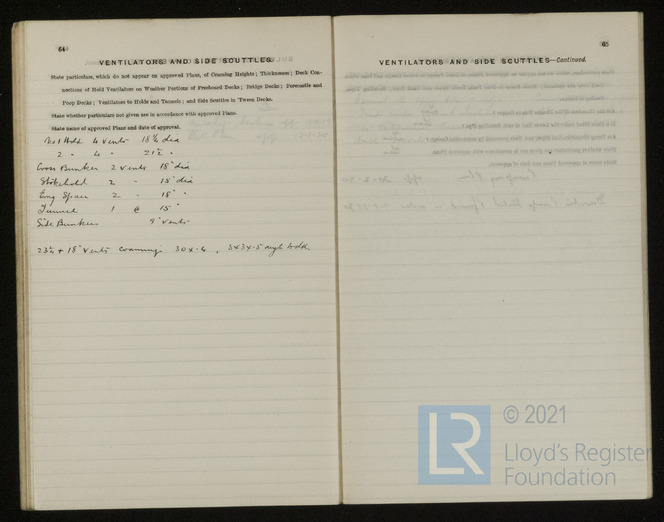 64
VENTILATORS AND SIDE SCUTTLES.
State particulars, which do not appear on approved Plans, of Coaming Heights; Thicknesses; Deck Con-
nections of Hold Ventilators on Weather Portions of Freeboard Decks; Bridge Decks; Forecastle and
Poop Decks; Ventilators to Holds and Tunnels; and Side Scuttles in 'Tween Decks.
State whether particulars not given are in accordance with approved Plans.
State name of approved Plans and date of approval.
Hold 4 vents dia
2 " 4 "
Cross Bunker 2 vents 18" dia
Stokehold 2 " 18" dia
Eng Space 2 " 18" "
Tunnel 1 @ 15"
Side Bunker 9" vents
+ 18" vents Coamings 30 x .4, 3x3x.5
65
VENTILATORS AND SIDE SCUTTLES—Continued.
© 2021
LR
Lloyd's Register
Foundation